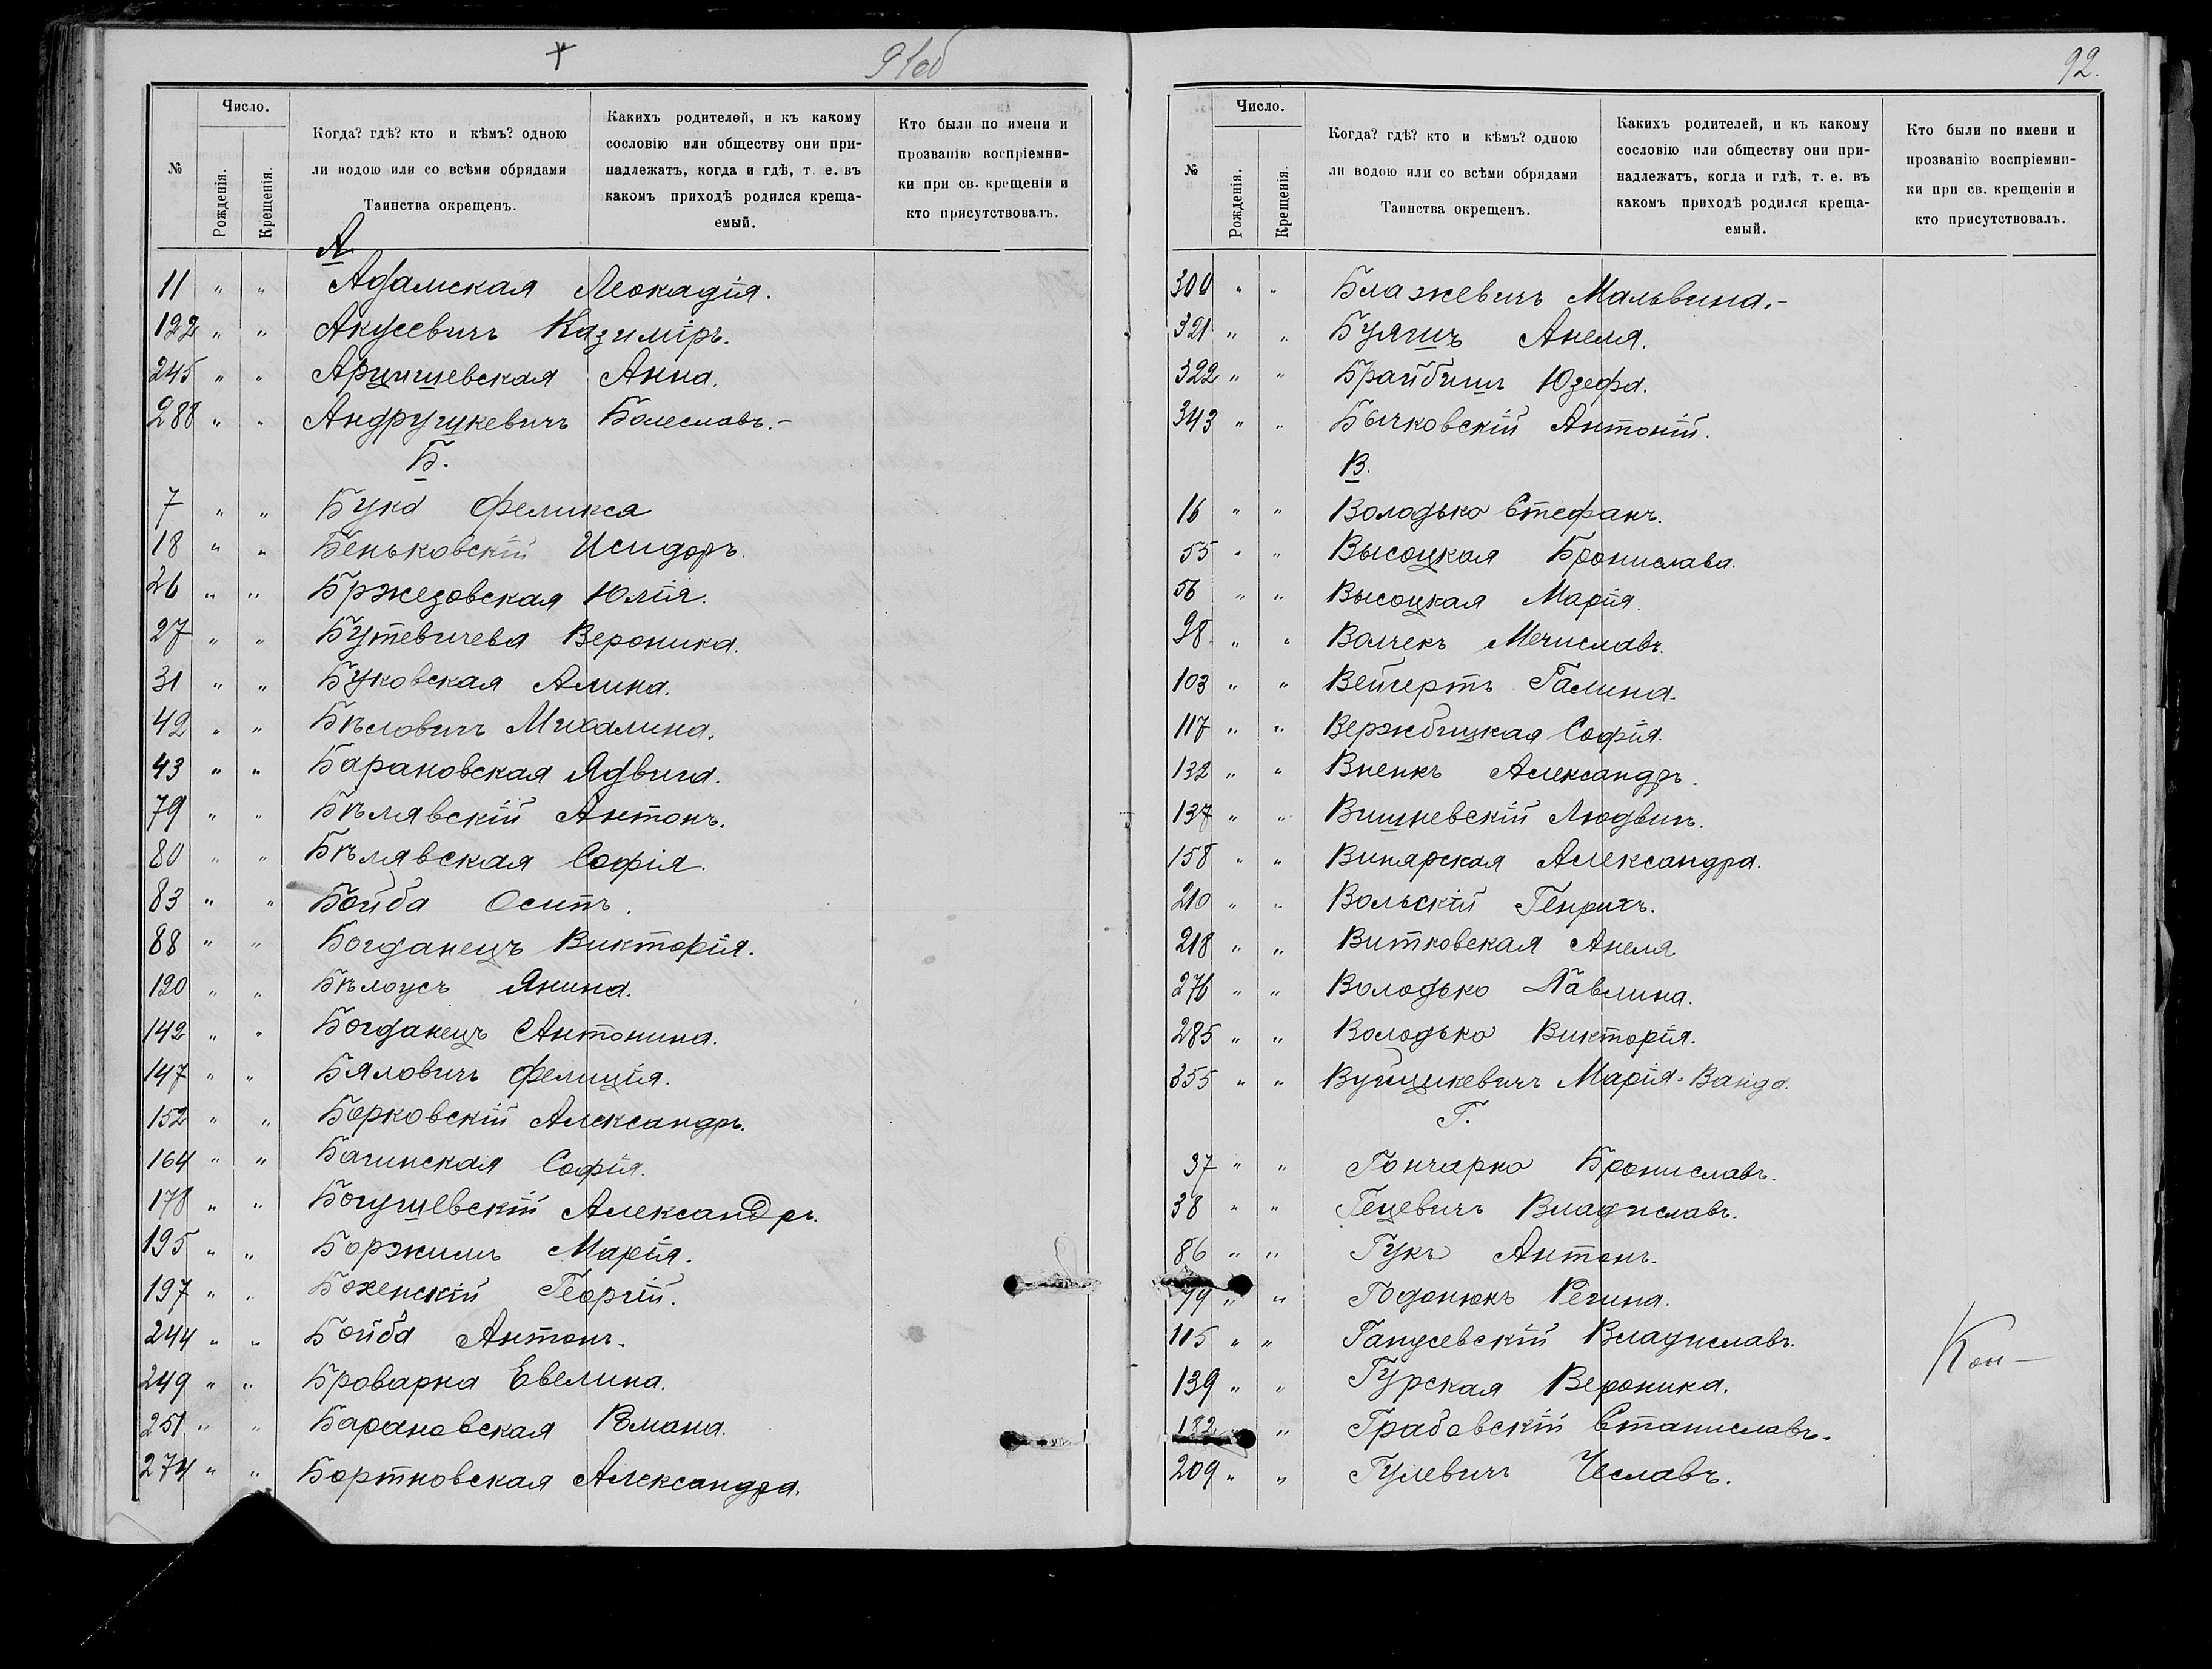 91об
№
Число.
Рожденія.
Крещенія.
Когда? гдѣ? кто и кѣмъ? одною
ли водою или со всѣми обрядами
Таинства окрещенъ.
Какихъ родителей, и къ какому
сословію или обществу они при-
надлежатъ, когда и гдѣ, т. е. въ
какомъ приходѣ родился креща-
емый.
Кто были по имени и
прозванію воспріемни-
ки при св. крещеніи и
кто присутствовалъ.
А
11 " " Адамская Леокадія.
122 " " Акусевичъ Казиміръ.
245 " " Арцишевская Анна.
288 " " Андрушкевичъ Болеславъ.-
Б.
7 " " Бука Феликса
18 " " Беньковскій Исидоръ.
26 " " Бржезовская Юлія.
27 " " Бутевичева Вероника.
31 " " Буковская Алина.
42 " " Бѣловичъ Михалина.
43 " " Барановская Ядвига.
79 " " Бѣлявскій Антонъ.
80 " " Бѣлявская Софія.
83 " " Бойба Осипъ.
88 " " Богданецъ Викторія.
120 " " Бѣлоусъ Янина.
142 " " Богданецъ Антонина.
147 " " Бяловичъ Фелиція.
152 " " Борковскій Александръ.
164 " " Багинская Софія.
178 " " Богушевскій Александръ.
195 " " Боржимъ Марія.
197 " " Бохенскій Георгій.
244 " " Бойба Антонъ.
249 " " Броварка Евелина.
251 " " Барановская Романа.
274 " " Бортновская Александра.
92.
№
Число.
Рожденія.
Крещенія.
Когда? гдѣ? кто и кѣмъ? одною
ли водою или со всѣми обрядами
Таинства окрещенъ.
Какихъ родителей, и къ какому
сословію или обществу они при-
надлежатъ, когда и гдѣ, т. е. въ
какомъ приходѣ родился креща-
емый.
Кто были по имени и
прозванію воспріемни-
ки при св. крещеніи и
кто присутствовалъ.
300 " " Блажевичъ Мальвина.-
321 " " Анеля.
322 " " Юзефа.
343 " " Бычковскій Антоній.
В.
16 " " Володько Стефанъ.
55 " " Высоцкая Бронислава.
56 " " Высоцкая Марія.
98 " " Волчекъ Мечиславъ.
103 " " Вейгертъ Галина.
117 " " Вержбицкая Софія.
132 " " Вненкъ Александръ.
137 " " Вишневскій Людвигъ.
158 " " Винярская Александра.
210 " " Вольскій Генрихъ.
218 " " Витковская Анеля
276 " " Володько Павлина.
285 " " Володько Викторія.
355 " " Вуйцикевичъ Марія-Ванда.
Г.
37 " " Гончарко Брониславъ.
38 " " Гецевичъ Владиславъ.
86 " " Гукъ Антонъ.
99 " " Годонюкъ Регина.
115 " " Гапусевскій Владиславъ.
139 " " Гурская Вероника.
182 " " Грабовскій Станиславъ.
209 " " Гулевичъ Чеславъ.